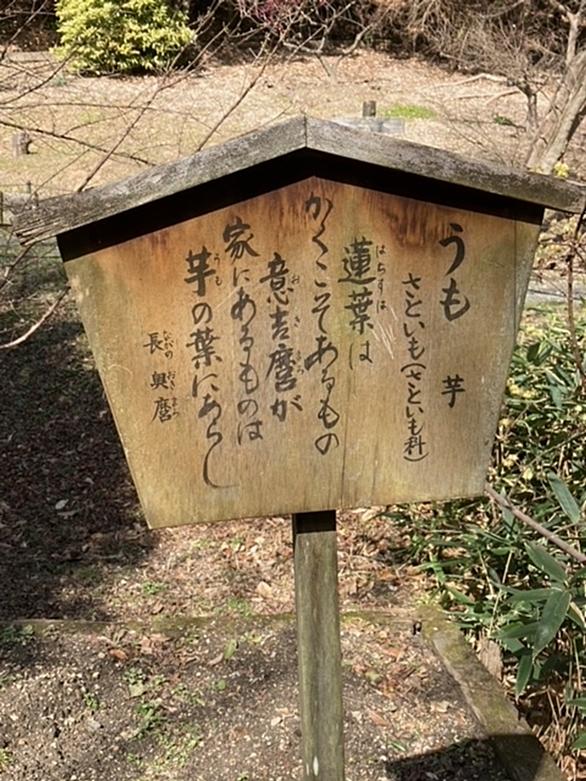 うも 芋
さといも(さといも科)
蓮葉は
はちすは
かくこそあるもの
意吉麿が
おきまろ
家にあるものは
芋の葉にあらし
うも
長興麿
ながの おきまろ